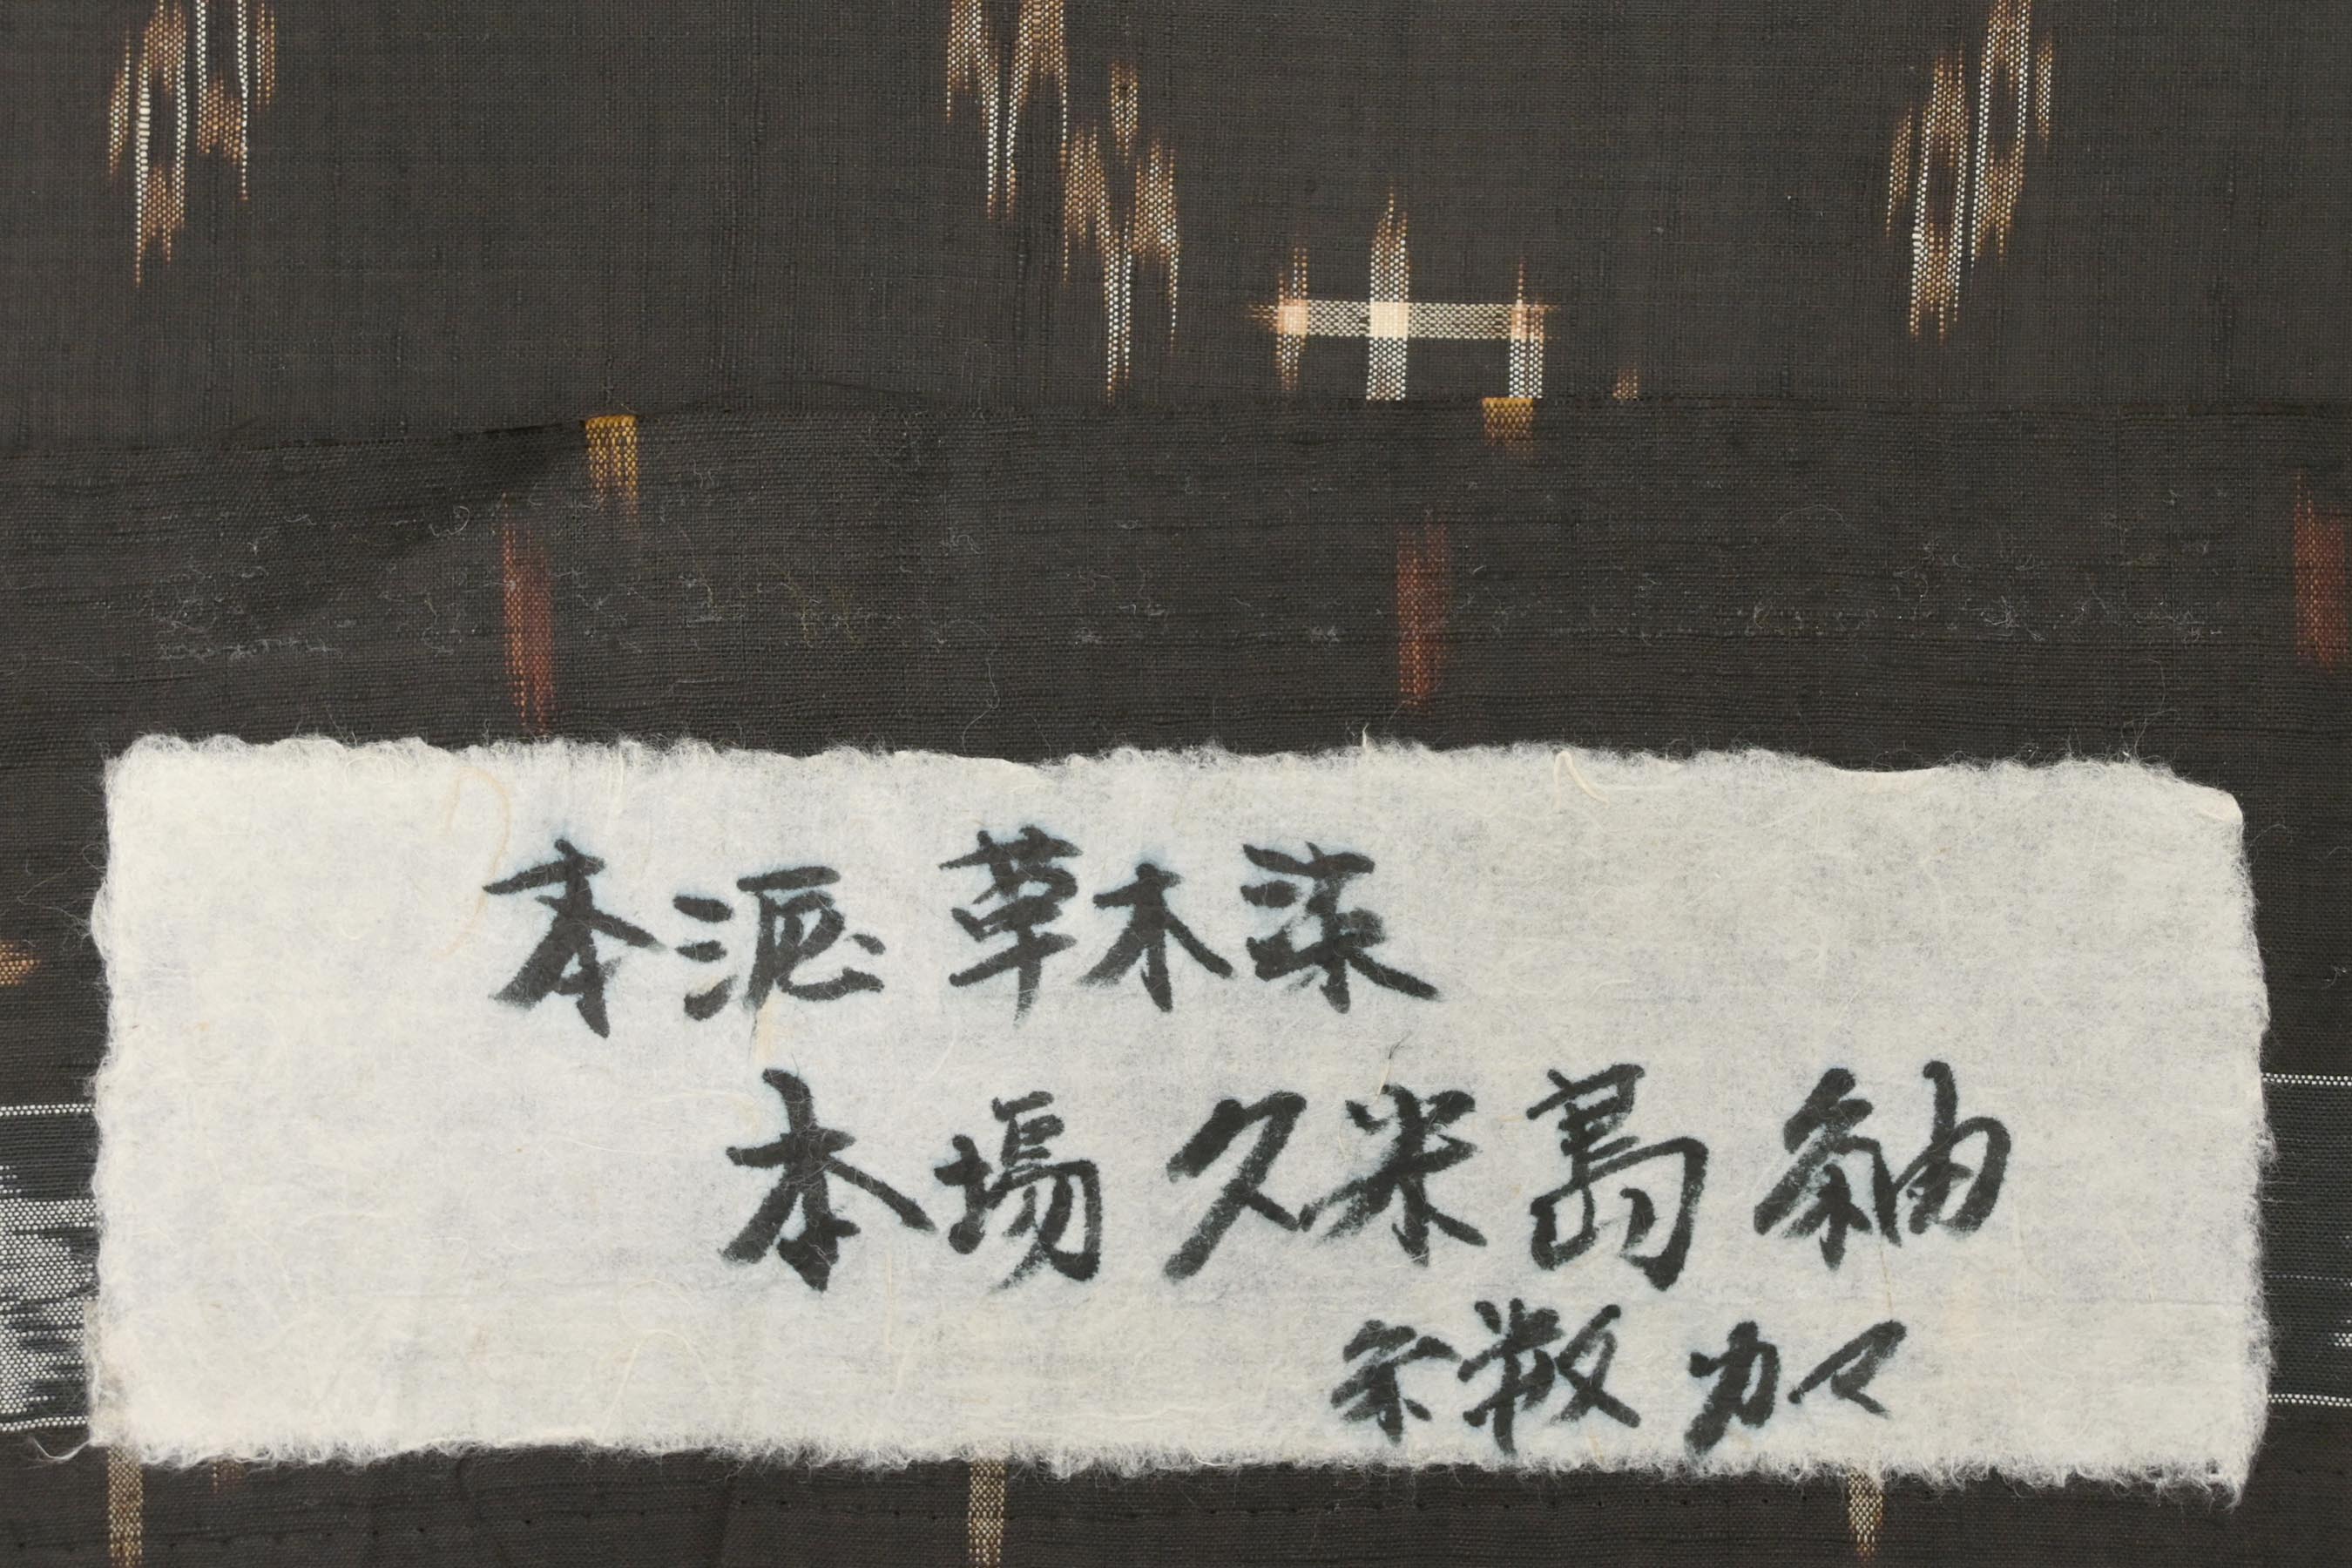 本泥 草木染
本場 久米島 紬
宗数 カマ